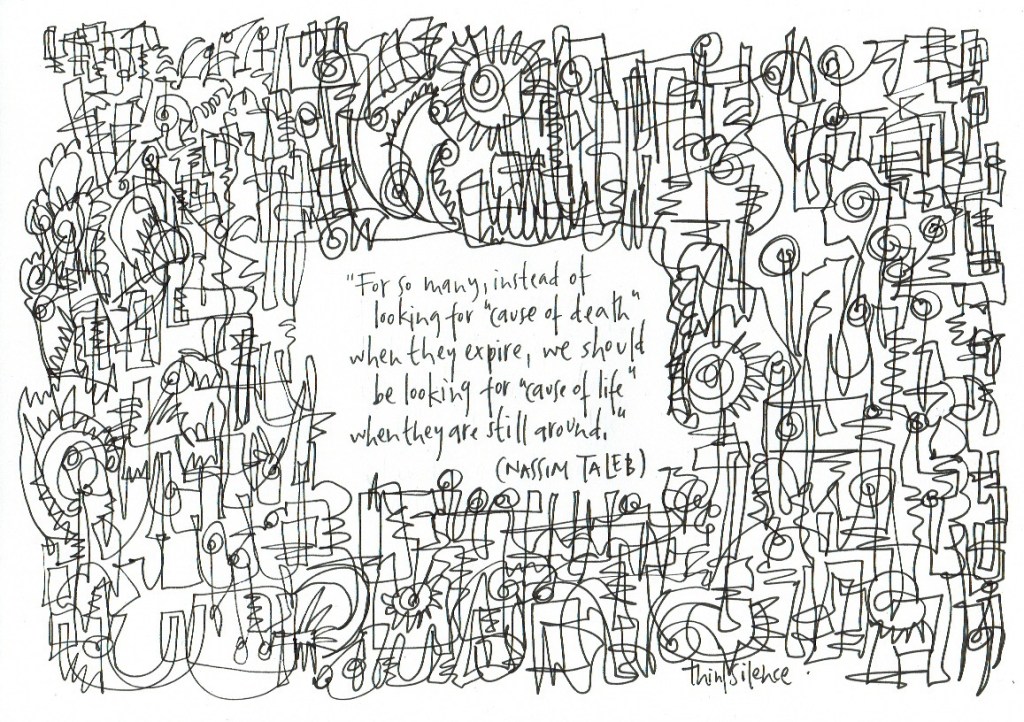 "For so many, instead of
looking for "cause of death"
when they expire, we should
be looking for "cause of life"
when they are still around."
(NASSIM TALEB)
thinsilence